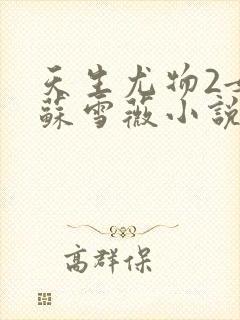 天生尤物2
蘇雪薇小說
高群保